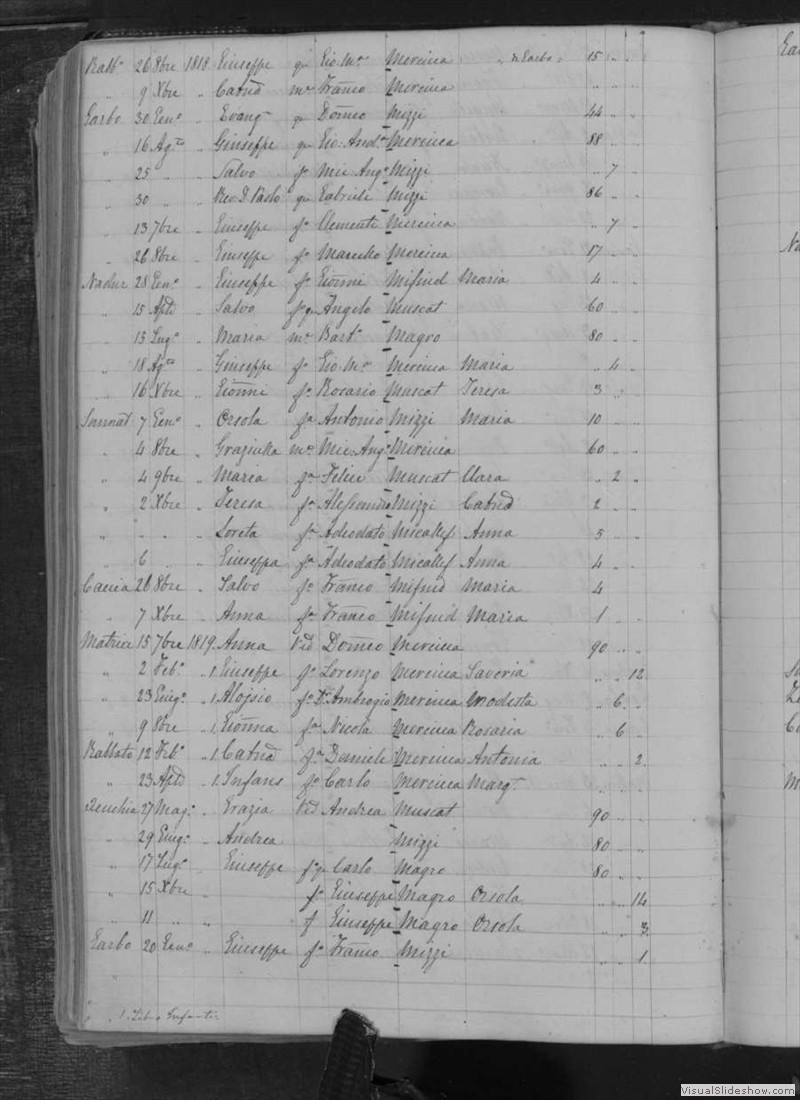 Rabb.o 26 8bre 1818 Giuseppe qu Gio. M.a Mercieca " n Garbo " 15 " "
" 9 Xbre " Catnd m.e Franco Mercieca " " "
Garbo 30 Genº " Evang.a qu Domco Mizzi 44 " "
" 16 Ag.to " Giuseppe qu Gio. And.a Mercieca 88 " "
" 25 " " Salvo fº Mic. Ang.º Mizzi " 7 "
" 30 " Rev. D. Paolo qu Gabriele Mizzi 86 " "
" 13 7bre " Giuseppe fº Clemente Mercieca " 7 "
" 26 8bre " Giuseppe fº Mercieca 17 " "
Nadur 28 Genº " Giuseppe fº Gionni Mifsud Maria 4 " "
" 15 Aple " Salvo fº qu Angelo Muscat 60 " "
" 13 Lugº " Maria m.e Bart.º Magro 80 " "
" 18 Ag.to " Giuseppe fº Gio. M.a Mercieca Maria " 4 "
" 16 Xbre " Gionni fº Rosario Muscat Teresa 3 " "
Sannat 7 Genº " Orsola fa Antonio Mizzi Maria 10 " "
" 4 8bre " Graziulla m.e Mic. Ang.º Mercieca 60 " "
" 4 9bre " Maria fa Felice Muscat Clara " 2 "
" 2 Xbre " Teresa fa Alessandro Mizzi Catnd 2 " "
" " " " Loreta fa Adeodato Micallef Anna 5 " "
" 6 " Giuseppa fa Adeodato Micallef Anna 4 " "
Caccia 26 8bre " Salvo fº Franco Mifsud Maria 4 " "
" 7 Xbre " Anna fa Franco Mifsud Maria 1 " "
Matrice 15 7bre 1819 Anna Vid Domco Mercieca 90 " "
" 2 Febº " 1. Giuseppe fº Lorenzo Mercieca Saveria " " 12
" 23 Giugº " 1. Aloisio fº Dr. Ambrogio Mercieca Modesta " 6 "
" 9 8bre " 1. Gionna fa Nicola Mercieca Rosaria " 6 "
Rabbato 12 Febº " 1. Catnd fa Daniele Mercieca Antonia " " 2
" 23 Aple " 1. Infans fº Carlo Mercieca Marg.a " " "
Zeuchia 27 Magº " Grazia Vid Andrea Muscat 90 " "
" 29 Giugº " Andrea Mizzi 80 " "
" 17 Lugº " Giuseppe fº qu Carlo Magro 80 " "
" 15 Xbre " fº Giuseppe Magro Orsola " " 14
" 11 " " " f Giuseppe Magro Orsola " " 3
Garbo 20 Genº " Giuseppe fº Franco Mizzi " " 1
1. Libro Infanti
VisualSlideshow.com